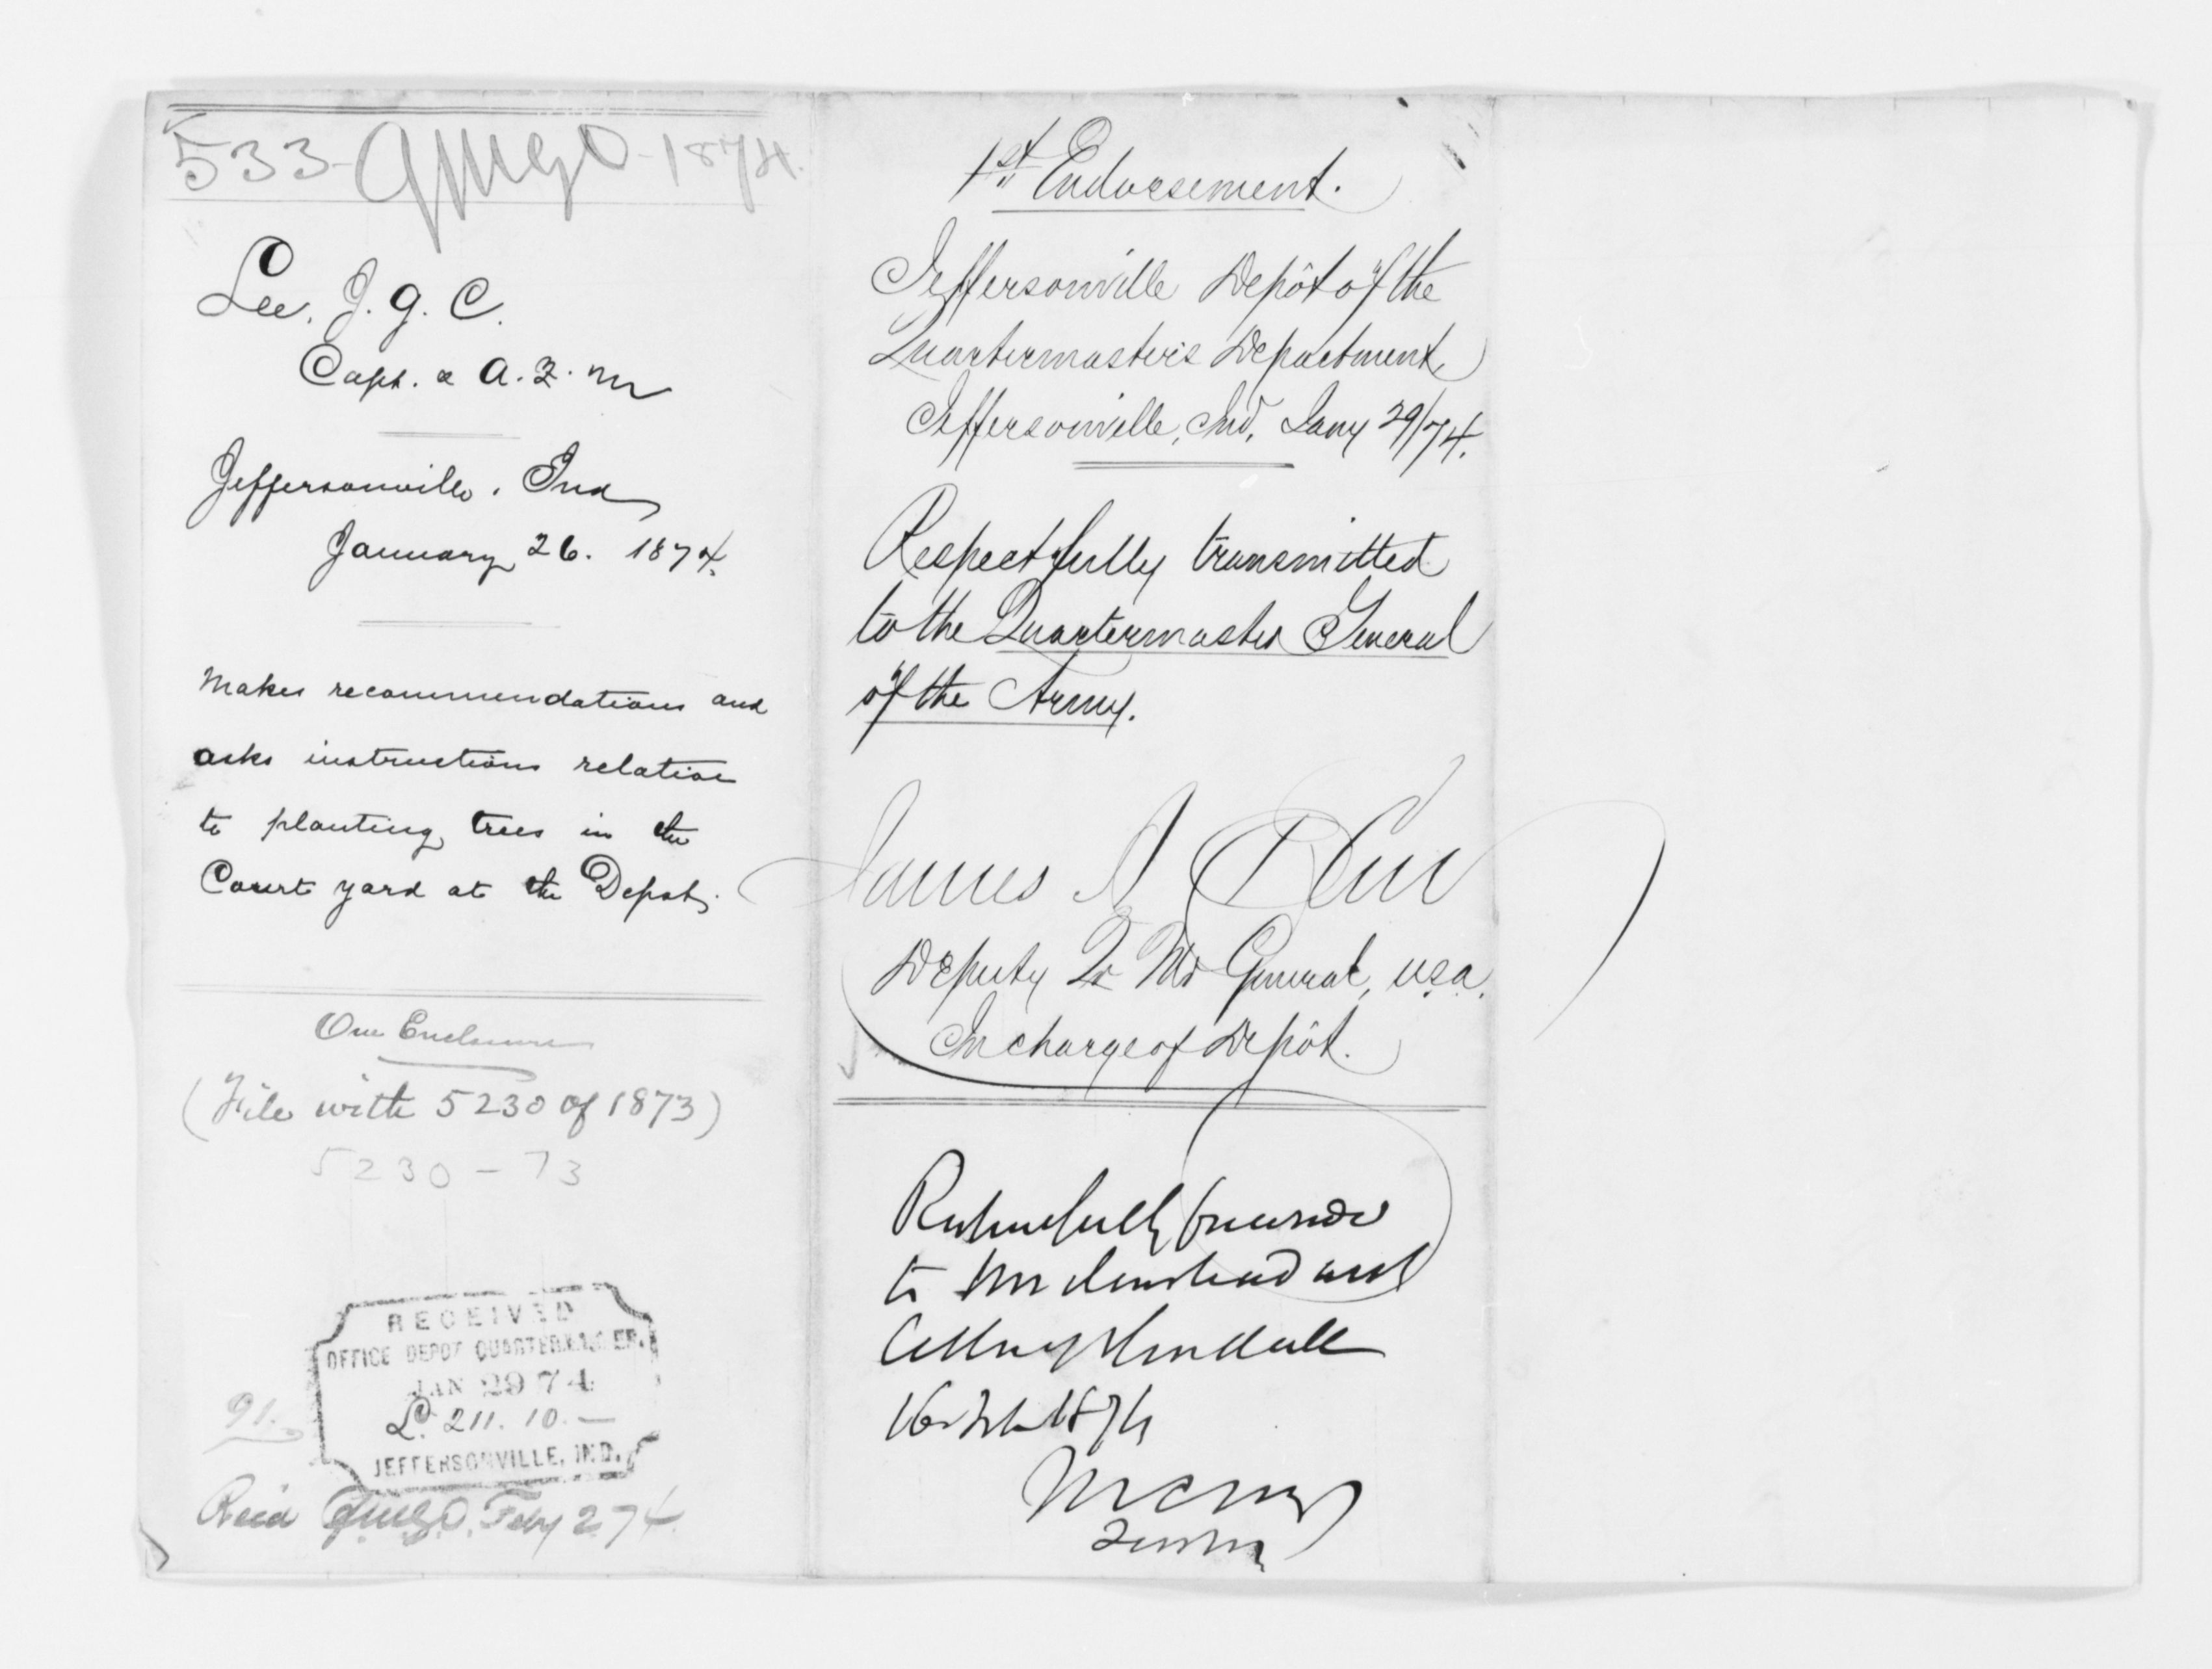 533-QMGO-1874.
Lee, J. G. C.
Capt. & A. Q. M
Jeffersonville, Ind
January 26. 1874.
Makes recommendations and
asks instructions relative
to planting trees in the
Court yard at the Depot.
One Enclosure
(File with 5230 of 1873)
5230-73
RECEIVED
OFFICE DEPOT QUARTERMASTER,
JAN 29 74
211. 10.—
JEFFERSONVILLE, IND.
91.
Recd QMGO, Feby 2 74
1st Endorsement.
Jeffersonville Depôt of the
Quartermaster's Department,
Jeffersonville, Ind, Jany 29/74.
Respectfully transmitted
to the Quartermaster General
of the Army.
James A Ekin
Deputy Qr Mr General, U.S.A.
In charge of Depôt.
Respectfully
to Mr Olmstead
16 Feb 1874